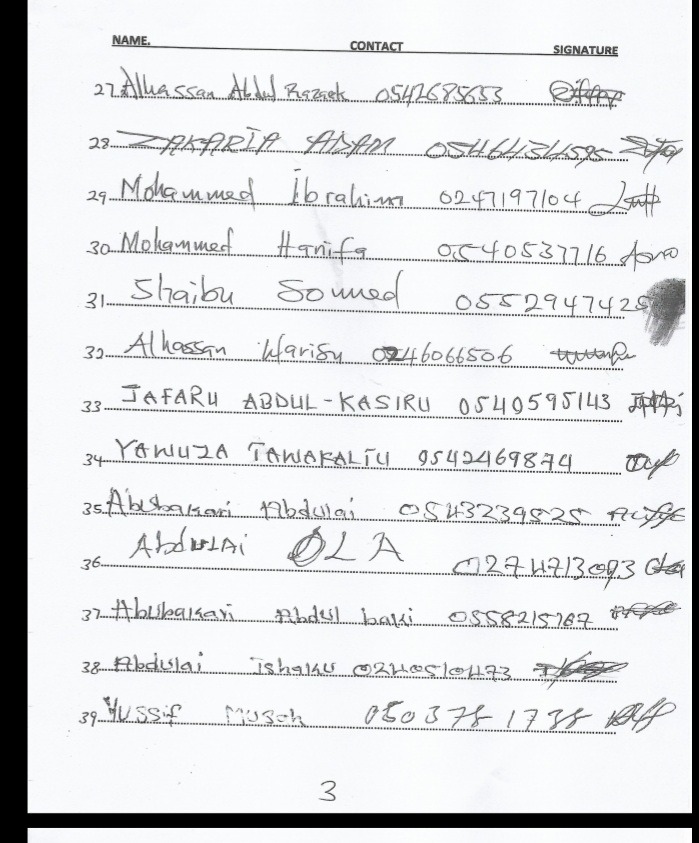 NAME. CONTACT SIGNATURE
27 Alhassan Abdul Razack 0542685653
28 ZAKARIA ADAM 0546434595
29 Mohammed Ibrahim 0247197104
30 Mohammed Hanifa 0540537716
31 Shaibu Soumed 0552947425
32 Alhassan Warisu 0246066506
33 JAFARU ABDUL-KASIRU 0540595143
34 YAWUZA TAWAKALTU 0542469874
35 Abubakari Abdulai 0543239525
36 Abdulai OLA 0274713093
37 Abubakari Abdul baki 0558215767
38 Abdulai Ishaku 0240510473
39 Yussif Musah 0503781738
3